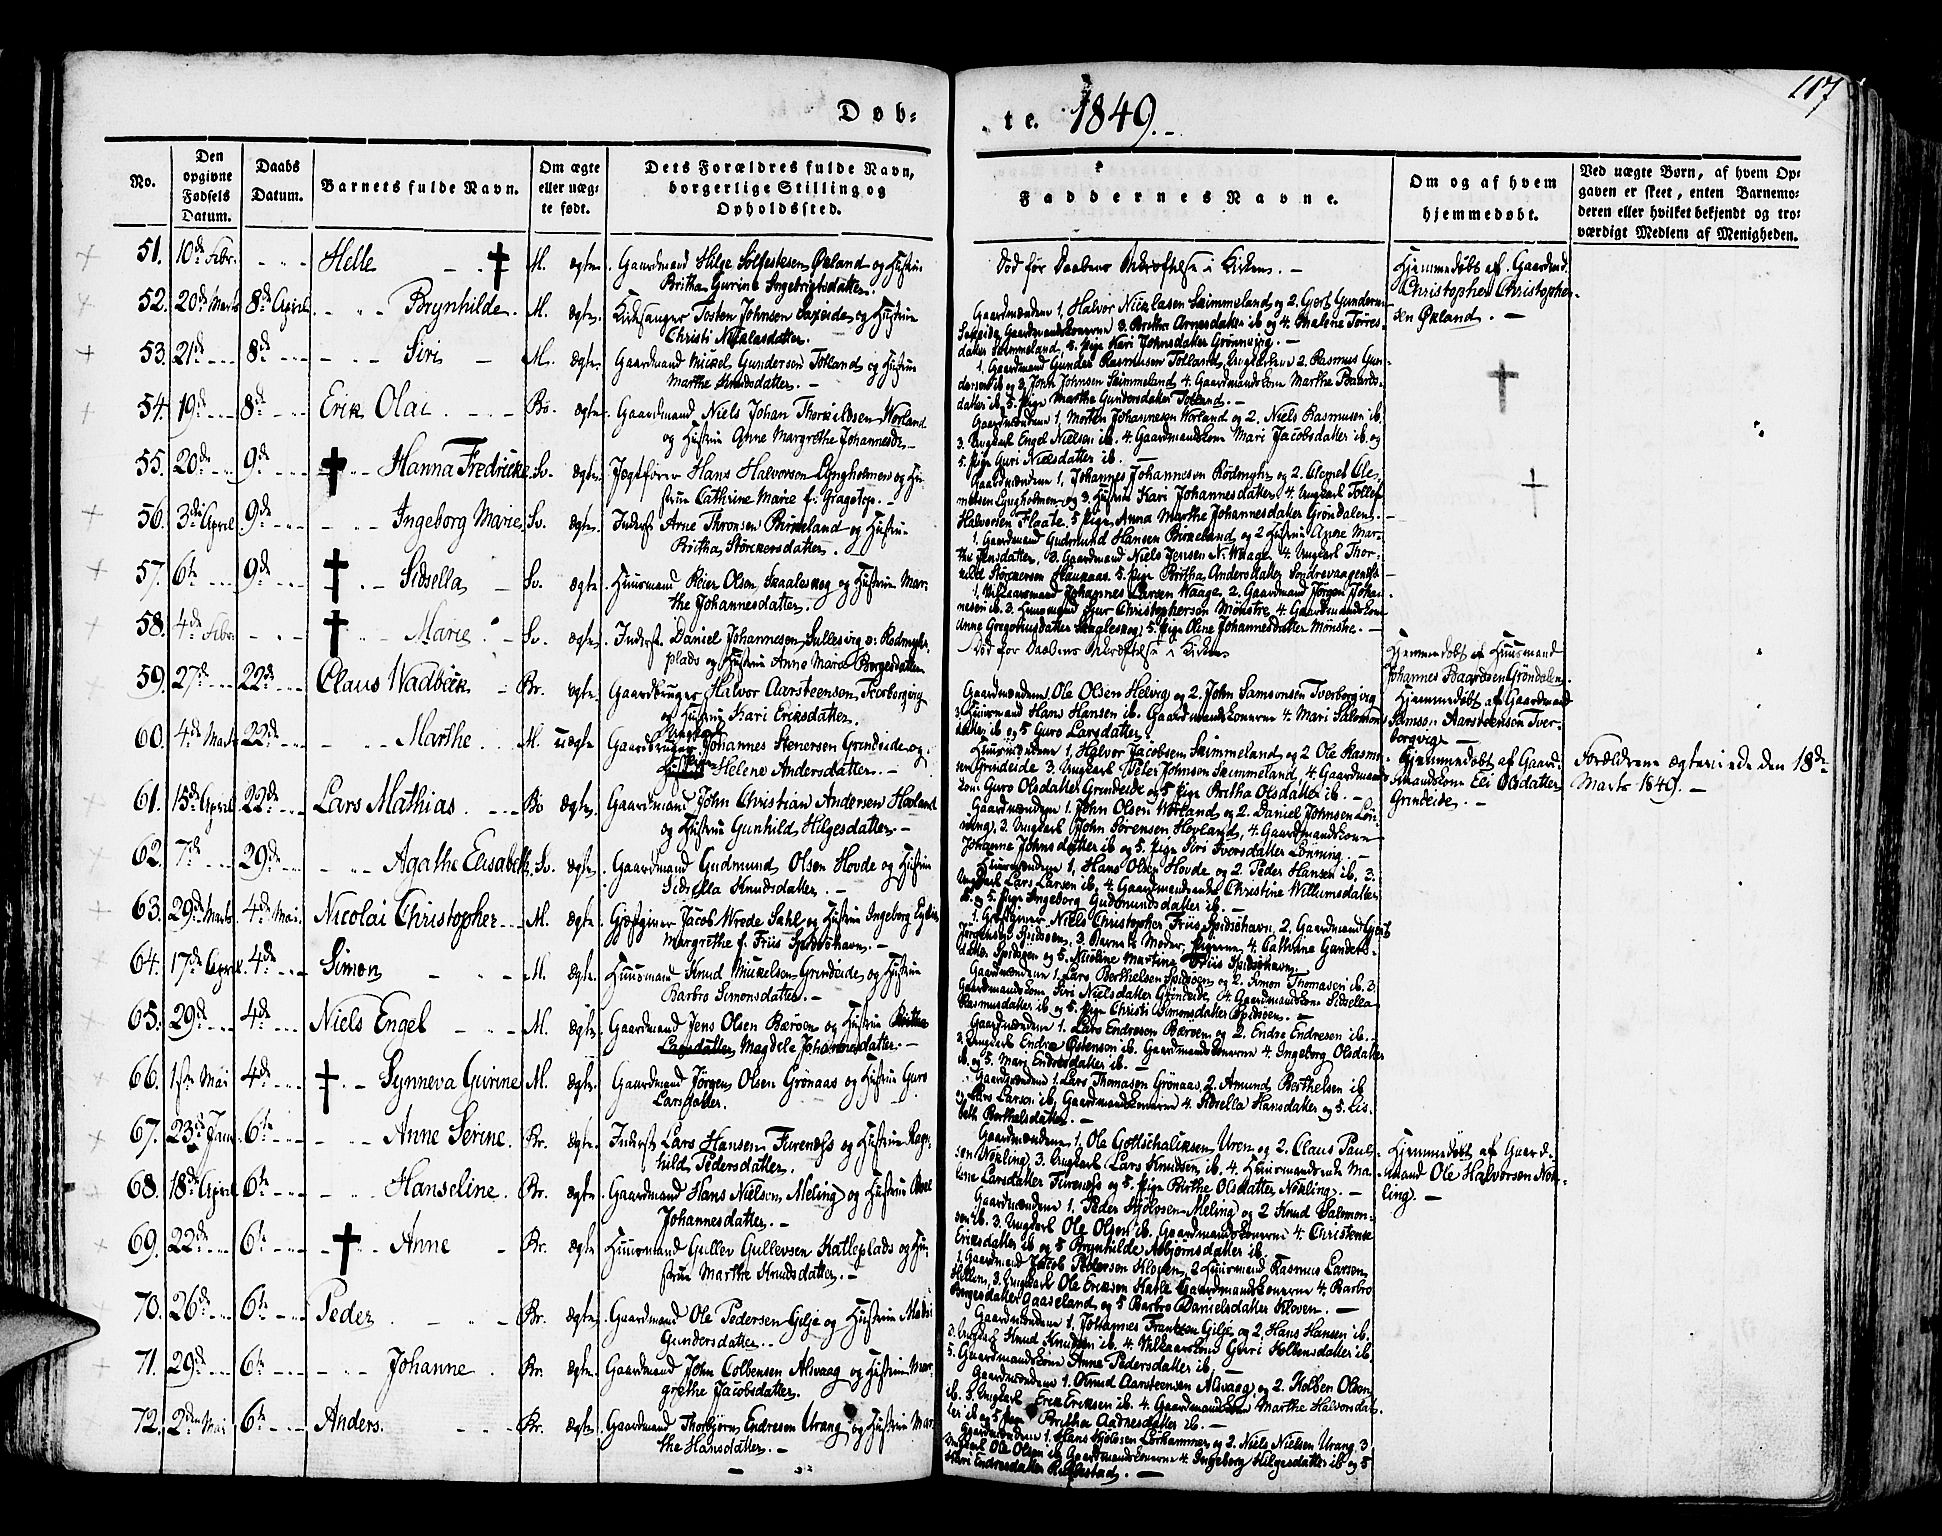 117
Døb-
te. 1849.-
No.
Den opgivne Fødsels Datum.
Daabs Datum.
Barnets fulde Navn.
Om ægte eller uæg-te født.
Dets Forældres fulde Navn, borgerlige Stilling og Opholdssted.
Faddernes Navne.
Om og af hvem hjemmedøbt.
Ved uægte Børn, af hvem Op-gaven er skeet, enten Barnemo-deren eller hvilket bekjendt og tro-værdigt Medlem af Menigheden.
51. 10de Febr. Helle M. ægte. Gaardmand Hilge Solfestesen Øxland og Hustrue
Britha Gurine Ingebrigtsdatter.
Død før Daabens Bekræftelse i Kirken. -
Hjemmedøbt af Gaardmd.
Christopher Christopher-
sen Øxland. -
52. 20de Marts 8de April Brynhilde. M. ægte. Kirkesanger Tosten Johnsen Saxeide og Hustrue
Christi Nicolasdatter.
Gaardmændene 1, Halvor Nicolasen Skimmeland og 2. Gjert Gunders-
Saxeide, Gaardmandskonerne 3. Britha Arnesdatter ib og 4. Malene Tørres-
datter Skimmeland, 5. Pige Kari Johnsdatter Grønnevig. -
53. 21de 8de Siri M. ægte. Gaardmand Mikkel Gundersen Totland og Hustrue
Marthe Knudsdatter. -
1. Gaardmand Gunder Rasmussen Totland, Ungkarlene 2. Rasmus Gun-
dersen ib og 3. John Johnsen Skimmeland 4. Gaardmandskone Marthe Baards-
datter ib, 5. Pige Marthe Gundersdatter Totland. -
54. 19de 8de Erik Olai Bø ægte. Gaardmand Niels Johan Thorkildsen Worland
og Hustrue Anne Margrethe Johannesdr. -
Gaardmændene 1. Morten Johannesen Worland og 2. Niels Rasmusen ib.
3. Ungkarl Engel Nielsen ib. 4. Gaardmandskone Mari Jacobsdatter ib. og
5. Pige Guri Nielsdatter ib. -
55. 20de 9de Hanna Fredricke. Sv. ægte. Jægtefører Hans Halvorsen Lyngholmen og Hu-
strue Cathrine Marie f. Gragetop. -
Gaardmændene 1, Johannes Johannesen Rødmyhr og 2. Clemet Cle-
metsen Lyngholmen og 3. Hustrue Kari Johannesdatter 4. Ungkarl Tollef
Halvorsen Flaate. 5. Pige Anna Marthe Johannesdatter Grøndalen. -
56. 3die April 9de Ingeborg Marie. Sv. ægte. Inderst Arne Thronsen Birkeland og Hustrue
Britha Størckersdatter.
1. Gaardmand Gudmund Hansen Birkeland og 2 Hustrue Anne Mar-
the Jensdatter, 3. Gaardmand Niels Jensen N. Waage 4. Ungkarl Thor-
kild Størckersen Haukaas. 5. Pige Britha Andersdatter Sondrevaagen
57. 6te 9de Sidsella Sv. ægte. Huusmand Reier Olsen Skaaleskog og Hustrue Mar-
the Johannesdatter.
1. Vilkaarsmand Johannes Larsen Waage, 2. Gaardmand Jørgen Johan-
nesen ib. 3. Huusmand Sjur Christophersen Mønstre, 4. Gaardmandskone
Anne Gregoriusdatter Skogleskog, 5. Pige Oline Johannesdatter Mønstre. -
58. 4de Febr. Marie Sv. ægte. Inderst Daniel Johannesen Sullesvig v: Rødmyhr
plads og Hustrue Anne Marie Børgesdatter
Død før Daabens Bekræftelse i Kirken
Hjemmedøbt af Huusmand
Johannes Baardsen Grøndalen.
59. 27de 22de Claus Wadbeck Br. ægte. Gaardbruger Halvor Aarsteensen, Tverborgvig
og Hustrue Kari Eriksdatter.
Gaardmændene 1. Ole Olsen Helvig og 2. John Samsonsen Tverborgvig
3. Huusmand Hans Hansen ib. Gaardmandskonerne 4. Mari Salomons
datter ib. og 5 Guro Larsdatter
Hjemmedøbt af Gaardmand
Samson Aarsteensen Tver-
borgvig. -
60. 4de Marts 22de Marthe M. uægte Gaardbruger Johannes Stenersen Grindeide og
Helene Andersdatter. -
Huusmændene 1. Halvor Jacobsen Skimmeland og 2 Ole Rasmus-
sen Grindeide 3. Ungkarl Peter Johnsen Skimmeland, 4. Gaardmands-
kone Guro Olsdatter Grindeide og 5 Pige Britha Olsdatter ib. -
Hjemmedøbt af Gaard-
mandskone Eli Olsdatter
Grindeide. -
Forældrene ægteviede den 18de
Marts 1849. -
61. 15de April 22de Lars Mathias Bø ægte. Gaardmand John Christian Andersen Hovland
og Hustrue Gunhild Hilgesdatter. -
Gaardmændene 1. John Olsen Worland og 2. Daniel Johnsen Løn-
ning, 3. Ungkarl John Sørensen Hovland, 4. Gaardmandskone
Johanne Johnsdatter ib og 5. Pige Siri Iversdatter Lønning. -
62. 7de 29de Agathe Elisabeth. Sv. ægte. Gaardmand Gudmund Olsen Hovde og Hustrue
Sidsella Knudsdatter. -
Huusmændene 1, Hans Olsen Hovde og 2. Peder Hansen ib. 3.
Ungkarl Lars Larsen ib, 4. Gaardmandsenke Christine Willumsdatter
ib. og 5. Pige Ingeborg Gudmundsdatter ib. -
63. 29de Marts 4de Mai Nicolai Christopher M. ægte. Gjæstgiver Jacob Wrede Sahl og Hustrue Ingeborg
Margrethe f. Friis Spidsøhavn. -
1. Gjæstgiver Niels Christopher Friis Spidsøhavn, 2. Gaardmand Gjert
Jørgensen Spidsøen, 3. Barnets Moder, Pigerne 4. Cathrine Gunders-
datter Spidsøen og 5. Nicoline Martine Friis Spidsøhavn.
64. 17de April 4de Simon M. ægte. Huusmand Knud Mickelsen Grindeide, og Hustrue
Barbro Simonsdatter. -
Gaardmændene 1. Lars Berthelsen Spidsøen og 2. Simon Thomasen ib. 3
Gaardmandskone Siri Nielsdatter Grindeide, 4. Gaardmandskone Sidsella
Rasmusdatter ib og 5. Pige Christi Simonsdatter Spidsøen. -
65. 29de 4de Niels Engel M. ægte. Gaardmand Jens Olsen Bærøen og Hustrue Britha
Larsdatter Magdele Johannesdatter. -
Gaardmændene 1. Lars Endresen Bærøen og 2. Endre Endresen ib. -
3. Ungkarl Endre Østensen ib. Gaardmandskonerne 4. Ingeborg Olsdatter
ib. og 5. Mari Endresdatter ib. -
66. 1ste Mai 4de Synneva Gurine M. ægte. Gaardmand Jørgen Olsen Grønaas og Hustrue Guro
Larsdatter.
Gaardmændene 1. Lars Thomasen Grønaas, 2. Amund Berthelsen ib
3. Lars Larsen ib, Gaardmandskonerne 4. Sidsella Hansdatter og 5. Lis-
beth Berthelsdatter. -
67. 23de Jan. 6te Anne Serine. Br. ægte. Inderst Lars Hansen Furenæss og Hustrue Ragn-
hild Pedersdatter.
Gaardmændene 1, Ole Gotschalksen Uren og 2. Claus Paul-
sen Nøkling, 3. Ungkarl Lars Knudsen ib. 4. Huusmandsenke Ma-
lene Larsdatter Furenæss og 5. Pige Birthe Olsdatter Nøkling. -
Hjemmedøbt af Gaard-
mand Ole Halvorsen Nøk-
ling. -
68. 18de April 6te Hanseline. Br. ægte. Gaardmand Hans Nielsen Meling og Hustrue
Johannesdatter. -
Gaardmændene 1. Peder Hjølosen Meling og 2 Knud Salomon-
sen ib. 3. Ungkarl Ole Olsen ib. Gaardmandskonerne 4. Christense
Eriksdatter ib og 5 Brynhilde Asbjørnsdatter ib.
69. 22de 6te Anne Br. ægte Huusmand Gullev Gullevsen Hatleplads og Hu-
strue Marthe Knudsdatter. -
1. Gaardmand Jacob Pedersen Kloven, 2 Huusmand Rasmus Larsen
Hellen, 3. Ungkarl Ole Eriksen Hatle Gaardmandskonerne 4. Barbro
Børgesdatter Gaaseland og 5 Barbro Danielsdatter Kloven. -
70. 26de 6te Peder Br. ægte. Gaardmand Ole Pedersen Gilje og Hustrue Madri
Gundersdatter. -
Gaardmændene 1. Johannes Frantzen Gilje og 2. Hans Hansen ib.
3. Ungkarl Knud Knudsen ib. 4. Vilkaarskone Guri Holbensdatter ib.
5. Gaardmandskone Anne Pedersdatter ib. -
71. 29de 6te Johanne Br. ægte. Gaardmand John Colbensen Alsvaag og Hustrue Mar-
grethe Jacobsdatter.
Gaardmændene 1. Knud Aarsteensen Alsvaag, og 2. Holben Olsen
ib. 3. Ungkarl Erik Eriksen ib. 4. Gaardmandskone Marthe Halvorsdat-
ter ib og 5 Pige Britha Aadnesdatter ib. -
72. 2den Mai 6te Anders. Br. ægte. Gaardmand Thorbjørn Endresen Urang og Hustrue Mar-
the Hansdatter. -
Gaardmændene 1. Hans Hjølosen Lørhammer og 2. Niels Nielsen Urang 3
Ungkarl Ole Olsen ib Gaardmandskonerne 4. Ingeborg Hilgesdatter ib og 5
Kari Endresdatter